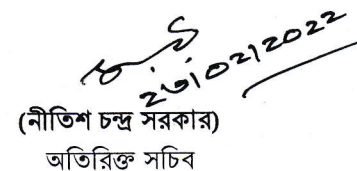 ২৩/০২/2022
(নীতিশ চন্দ্র সরকার)
অতিরিক্ত সচিব